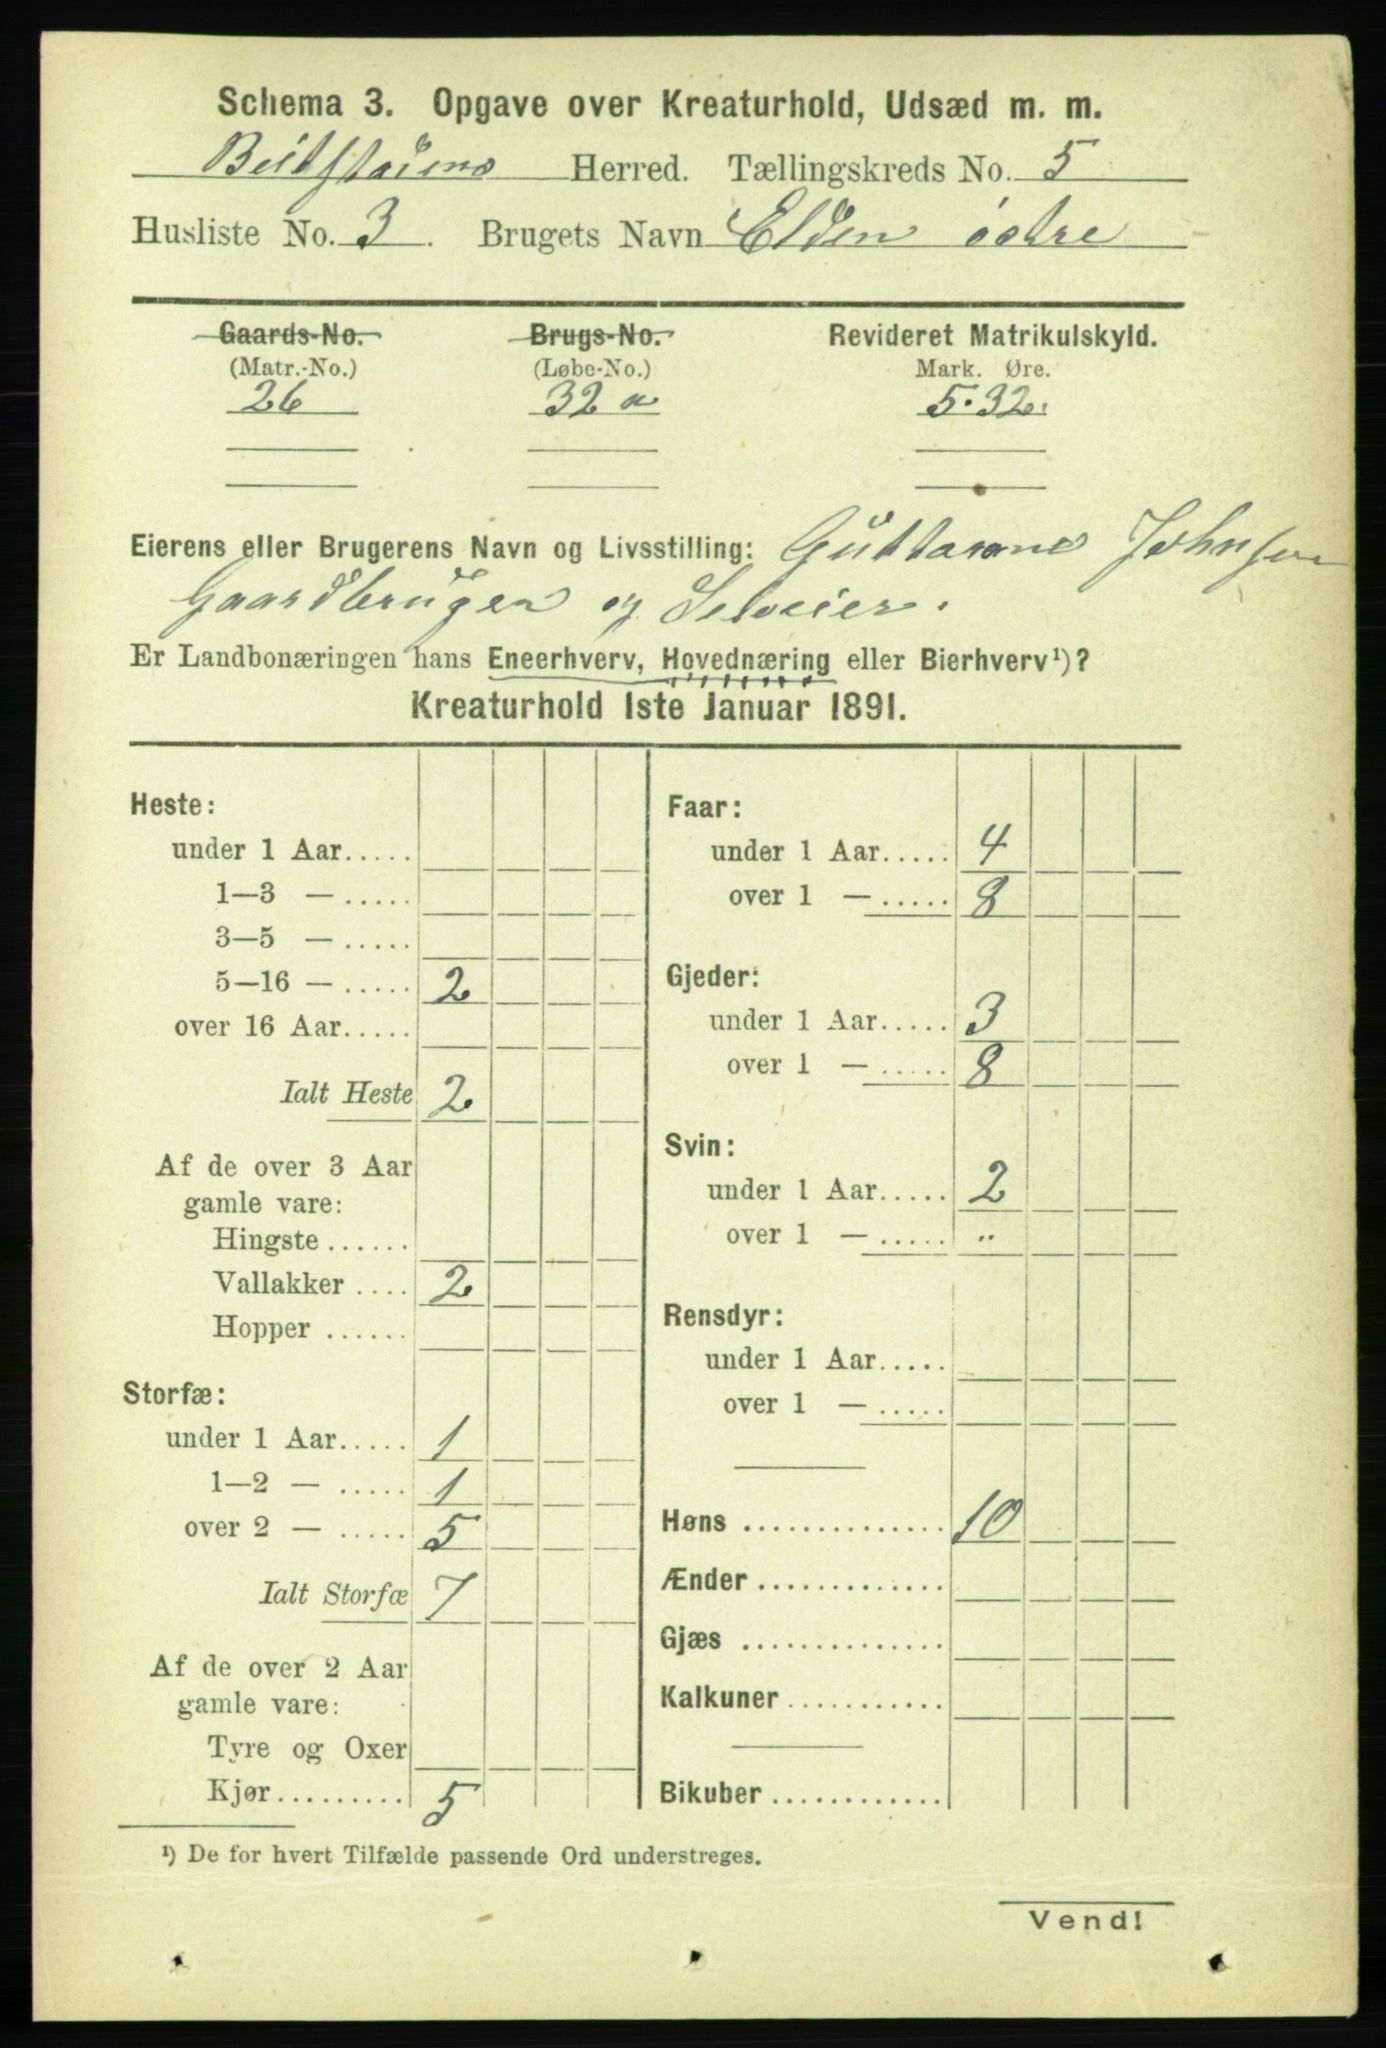 Schema 3. Opgave over Kreaturhold, Udsæd m. m.
Beitstadens Herred. Tællingskreds No. 5
Husliste No. 3. Brugets Navn Elden östre
Gaards-No. Brugs-No. Revideret Matrikulskyld.
(Matr.-No.) (Løbe-No.) Mark. Øre.
26 32 a 5.32.
Eierens eller Brugerens Navn og Livsstilling: Johnsen
Gaardbruger og Selveier.
Er Landbonæringen hans Eneerhverv, Hovednæring eller Bierhverv¹)?
Kreaturhold 1ste Januar 1891.
Heste:
under 1 Aar.....
1—3 — .....
3—5 — .....
5—16 — ..... 2
over 16 Aar.....
Ialt Heste 2
Af de over 3 Aar
gamle vare:
Hingste ......
Vallakker .... 2
Hopper ......
Storfæ:
under 1 Aar..... 1
1—2 — ..... 1
over 2 — ..... 5
Ialt Storfæ 7
Af de over 2 Aar
gamle vare:
Tyre og Oxer
Kjør......... 5
Faar:
under 1 Aar..... 4
over 1 — ..... 8
Gjeder:
under 1 Aar..... 3
over 1 — ..... 8
Svin:
under 1 Aar..... 2
over 1 — ..... "
Rensdyr:
under 1 Aar.....
over 1 — .....
Høns .............. 10
Ænder .............
Gjæs ..............
Kalkuner ...........
Bikuber ............
¹) De for hvert Tilfælde passende Ord understreges.
Vend!